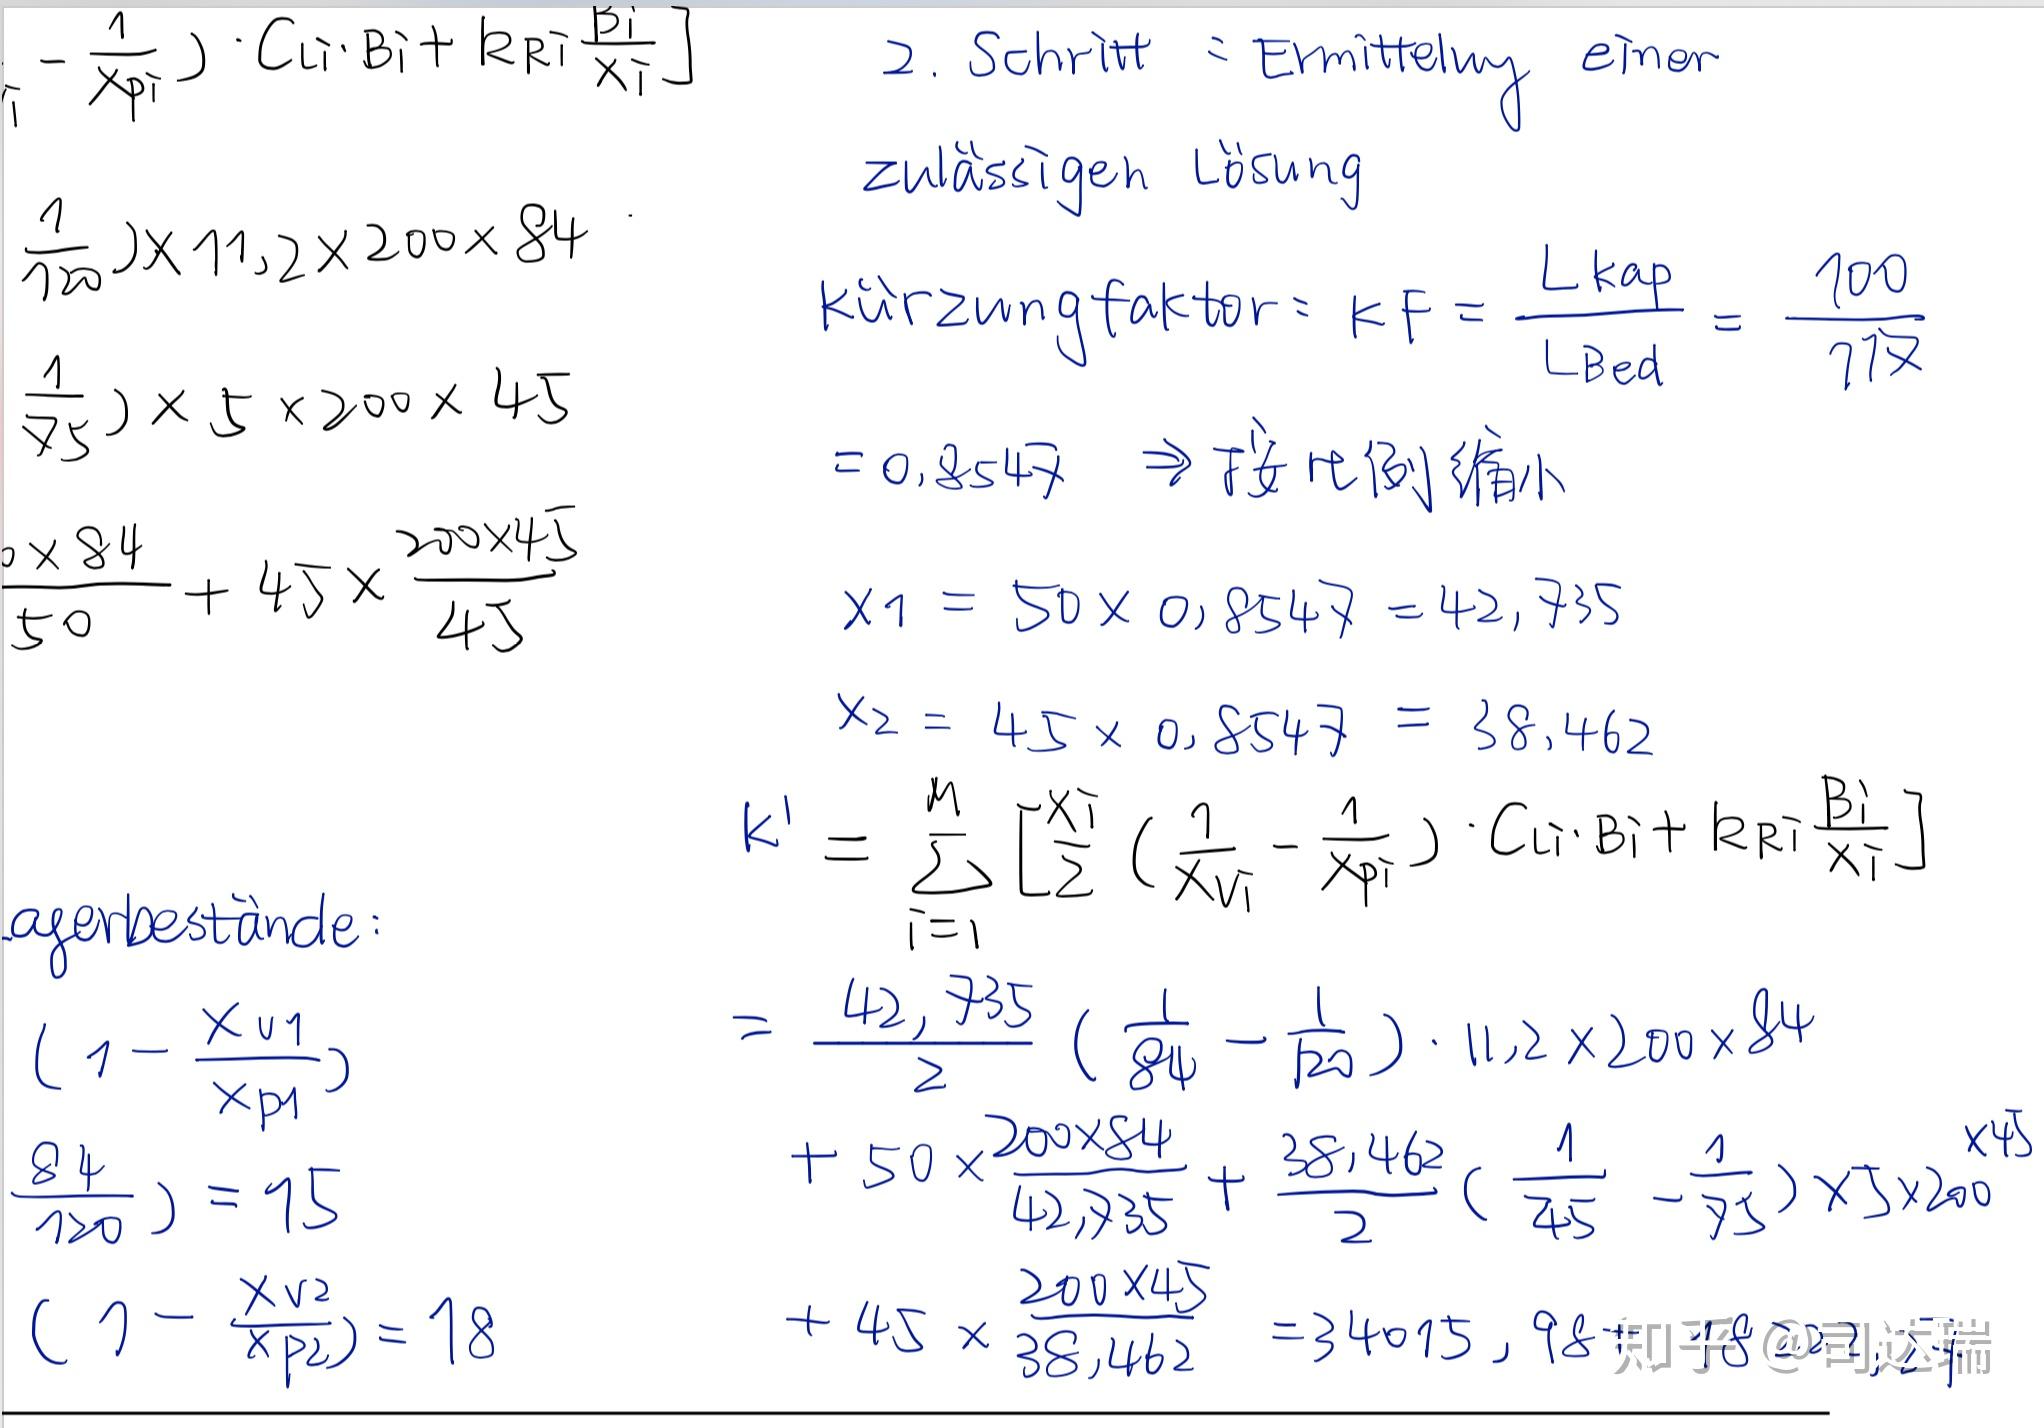 - 1/xpi) · CLi·Bi + kRi Bi/xi]
1/120) × 11,2 × 200 × 84
1/75) × 5 × 200 × 45
0×84/50 + 45 × 200×45/45
agerbestände:
(1 - xv1/xp1)
84/120) = 15
(1 - xv2/xp2) = 18
2. Schritt : Ermittelung einer
zulässigen Lösung
kürzungfaktor: KF = Lkap/LBed = 100/117
= 0,8547 ⇒ 按比例缩小
x1 = 50 × 0,8547 = 42,735
x2 = 45 × 0,8547 = 38,462
K' = M∑i=1 [xi/2 (1/xvi - 1/xpi) · CLi·Bi + kRi Bi/xi]
= 42,735/2 (1/84 - 1/120) · 11,2 × 200 × 84
+ 50 × 200×84/42,735 + 38,462/2 (1/45 - 1/75) × 5 × 200 × 45
+ 45 × 200×45/38,462 = 34015,98 +
知乎 @司达瑞